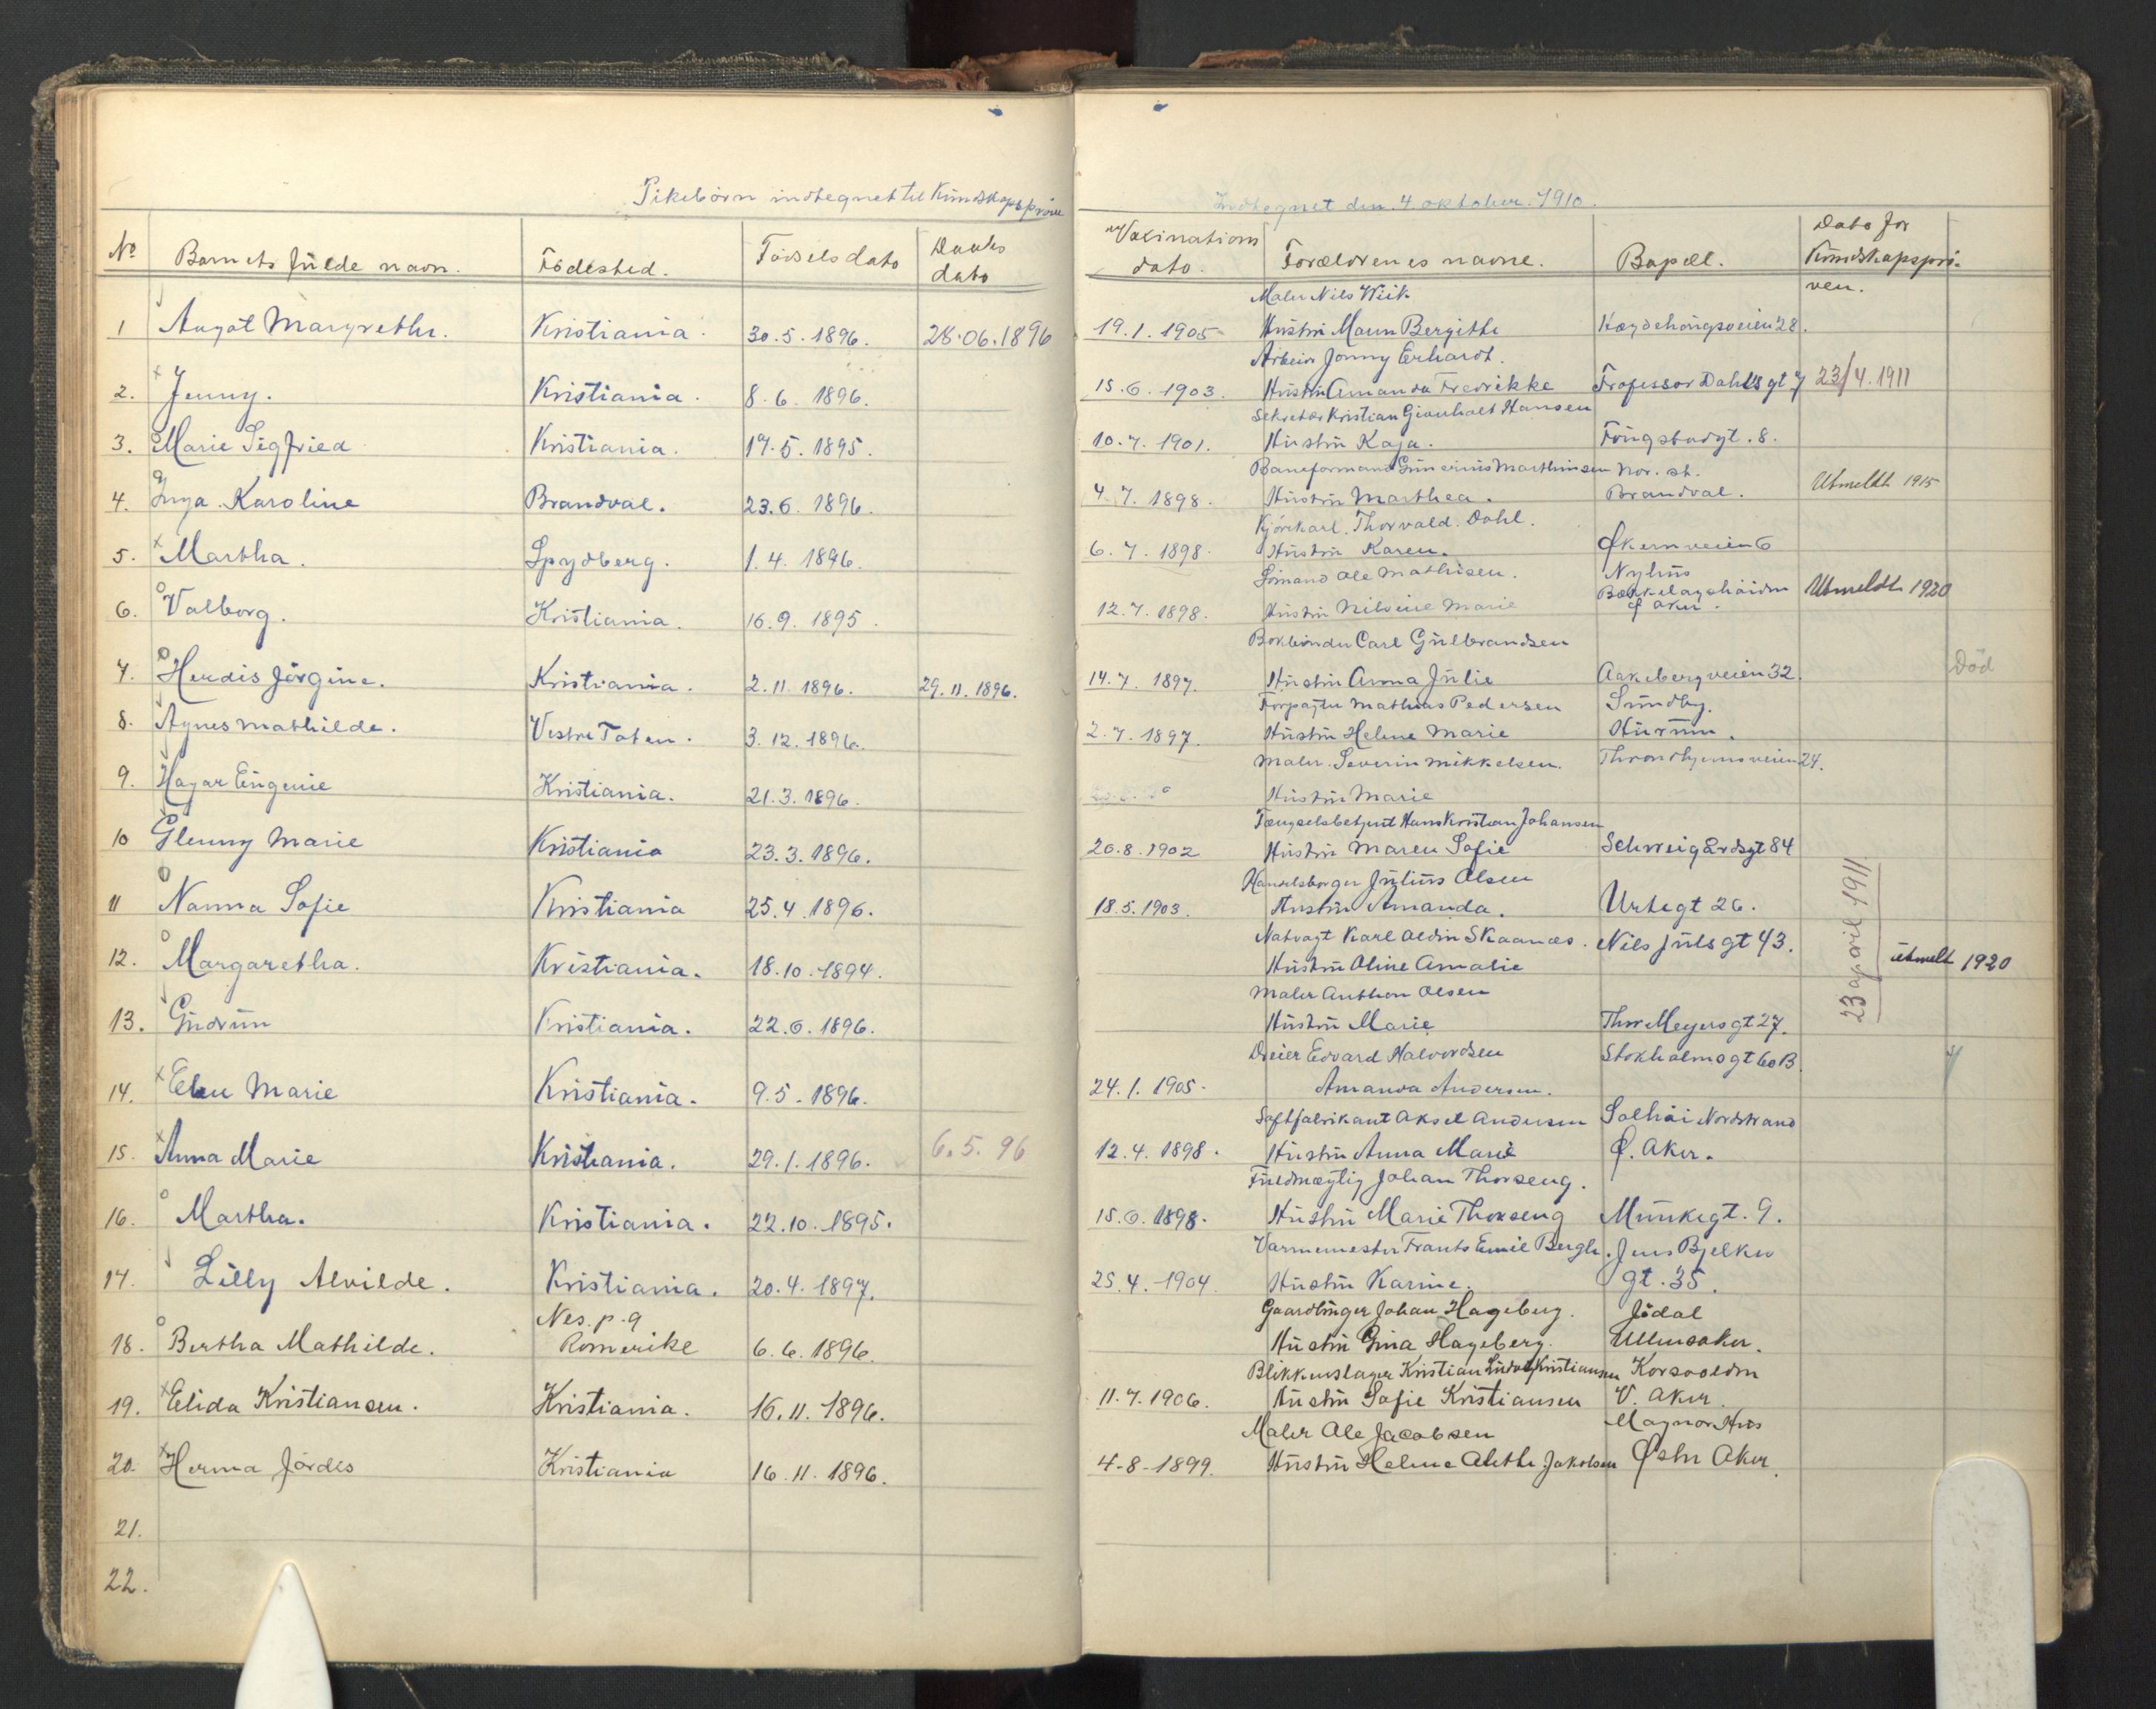 Pikebörn indtegnet til Kundskapspröve
Indtegnet den 4 oktober. 1910.
No Barnets fulde navn. Födested. Födselsdato Daabs dato
Vaxinations dato. Forældrenes navne. Bopæl. Dato for Kundskapsprö-ven.
Maler Nils Wiik
1 Aagot Margrethe. Kristiania. 30.5.1896. 28.06.1896 19.1.1905 Hustru Maren Bergithe 28.
Arbeider Jonny Erhardt.
2. Jenny. Kristiania. 8.6.1896. 15.6.1903. Hustru Amanda Fredrikke Professor Dahls gt 7 23/4.1911
Sekretær Kristian Hansen
3. Marie Sigfried Kristiania. 17.5.1895. 10.7.1901. Hustru Kaja. 8.
Baneformand Gunerius Marthinsen Nor. st.
4. Inga Karoline Brandval. 23.6.1896. 4.7.1898. Hustru Marthea. Brandval. Utmeldt 1915
Kjörekarl. Thorvald. Dahl.
5. Martha. Spydberg. 1.4.1896. 6.7.1898. Hustru Karen. Økernveien 6
Sömand Ole Mathisen. Nyhus
6. Valborg. Kristiania. 16.9.1895. 12.7.1898. Hustru Nilsine Marie Bækkelagshöiden Ø Aker. Utmeldt 1920
Bokbinder Carl Gulbrandsen
7. Herdis Jörgine. Kristiania. 2.11.1896. 29.11.1896. 14.7.1897. Hustru Anna Julie Aakebergveien 32. Död
Forpagter Mathias Pedersen Sundby.
8. Agnes Mathilde. Vestre Toten. 3.12.1896. 2.7.1897. Hustru Helene Marie Hurum.
Maler. Severin Mikkelsen. Throndhjemsveien 24.
9. Hagar Eugenie Kristiania. 21.3.1896. Hustru Marie
Fængselsbetjent Hans Kristian Johansen
10 Glenny Marie Kristiania 23.3.1896. 26.8.1902 Hustru Maren Sofie Schweigårdsgt 84
Handelsborger Julius Olsen
11 Nanna Sofie Kristiania 25.4.1896. 18.5.1903. Hustru Amanda. Urtegt 26.
23 april 1911
Natvagt Karl Aldin Skaanes. Nils Juls gt 43.
12. Margaretha. Kristiania. 18.10.1894. Hustru Oline Amalie utmelt 1920
Maler Anthon Olsen
13. Gudrun Kristiania. 22.6.1896. Hustru Marie Thor Meyers gt 27.
Dreier Edvard Halvordsen Stokholmsgt 60 B
14. Ellen Marie Kristiania. 9.5.1896. 24.1.1905. Amanda Andersen.
Saftfabrikant Aksel Andersen Solhöi Nordstrand
15. Anna Marie Kristiania. 29.1.1896. 6.5.96 12.4.1898. Hustru Anna Marie Ø. Aker.
Fuldmægtig Johan Thorseng.
16. Martha. Kristiania. 22.10.1895. 15.6.1898. Hustru Marie Thorseng Munkegt. 9.
Varmemester Frants Emil Bergh. Jens Bjelkes
17. Lilly Alvilde. Kristiania. 20.4.1897. 25.4.1904 Hustru Karine. gt. 35.
Nes. p. a Gaardbruger Johan Hageberg. Jödal
18. Bertha Mathilde. Romerike 6.6.1896. Hustru Gina Hageberg. Ullensaker.
Blikkenslager Kristian Ludvig Kristiansen Korsvolden
19. Elida Kristiansen. Kristiania. 16.11.1896. 11.7.1906. Hustru Sofie Kristiansen V. Aker.
Maler Ole Jacobsen
20. Herma Jördis Kristiania 16.11.1896. 4-8-1899. Hustru Helene Alethe Jakobsen Østre Aker.
21.
22.